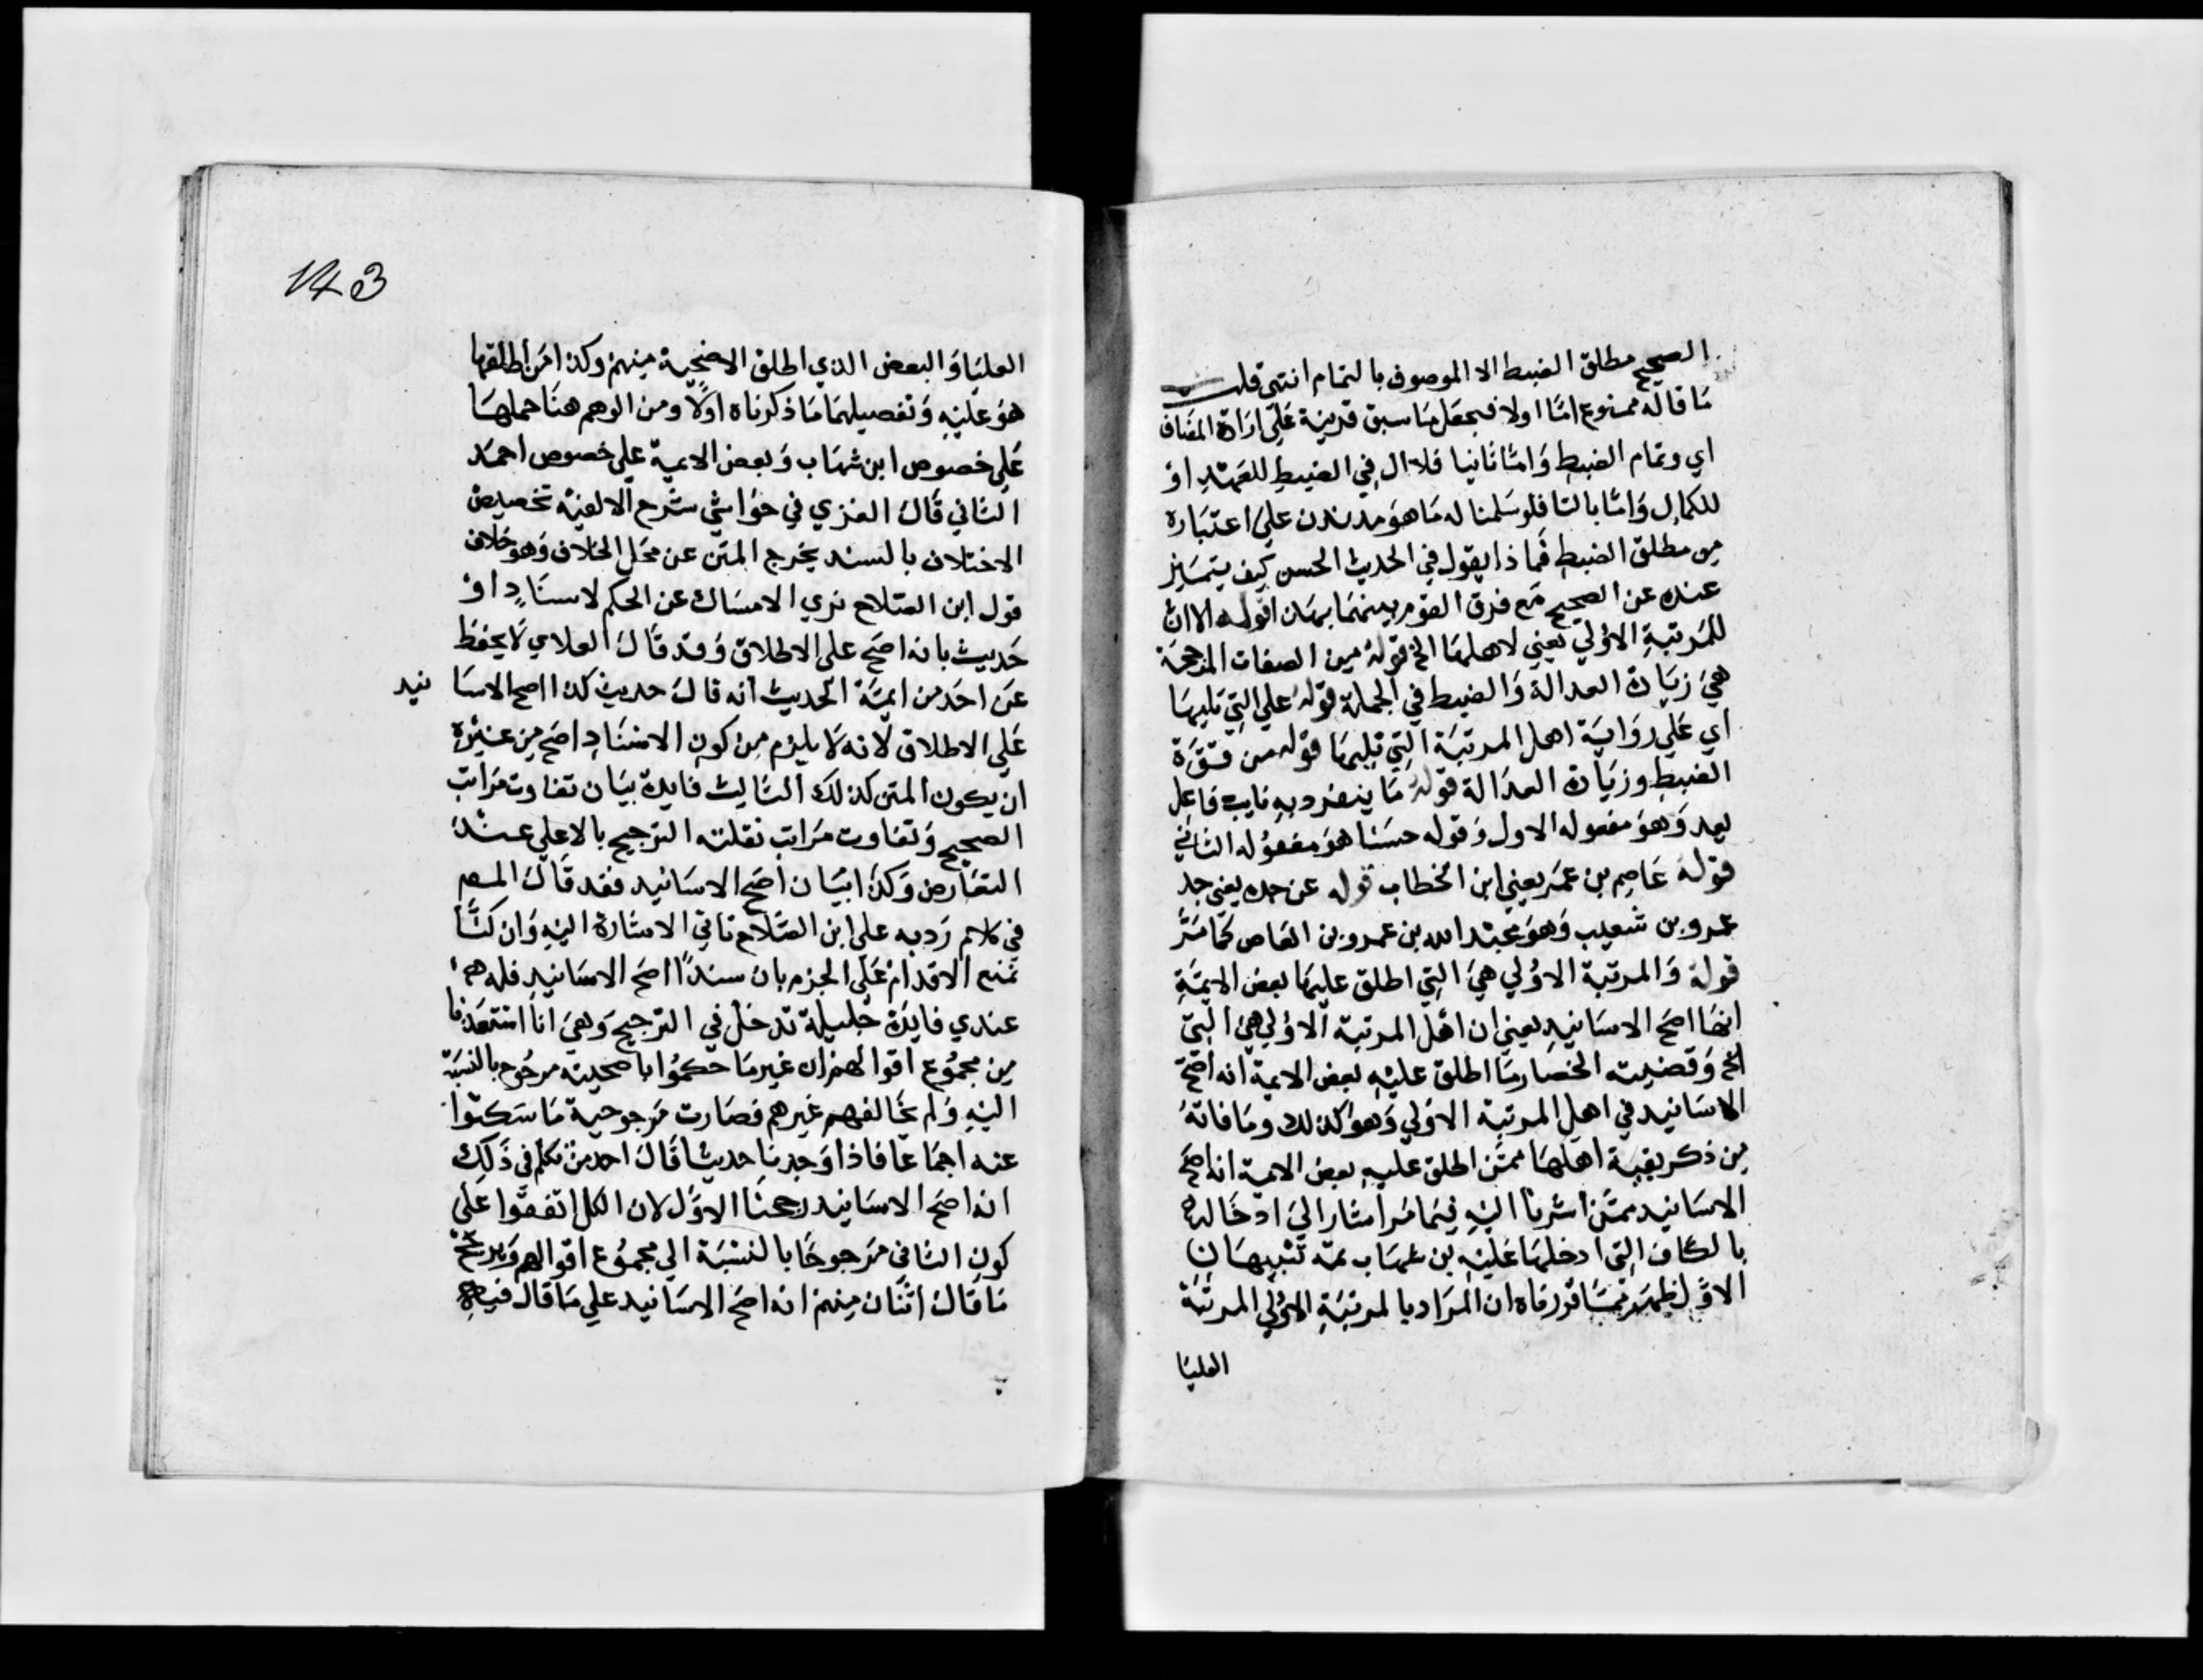 الصحيح مطلق الضبط الا الموصوف بالتمام انتهى قلت
ما قاله ممنوع اما اولا فيجعل ما سبق قرينة على ارادة المضاف
اي وتمام الضبط واما ثانيا فلا ال في الضبط للعهد او
للكمال واما بالثا فلو سلمنا له ما هو مدندن على اعتباره
من مطلق الضبط فما ذا يقول في الحديث الحسن كيف يتميز
عنده عن الصحيح مع فرق القوم بينهما بهذا قوله الا ان
للمرتبة الاولي يعني لاهلها الخ قوله من الصفات المرجحة
هي زيادة العدالة والضبط في الجملة قوله علي التي تليها
اي علي رواية اهل المرتبة التي تليها قوله من قوة
الضبط وزيادة العدالة قوله ما ينفرد به نايب فاعل
يعد وهو مفعوله الاول وقوله حسنا هو مفعوله الثاني
قوله عاصم بن عمر يعني ابن الخطاب قوله عن جده يعني جد
عمرو بن شعيب وهو عبد الله بن عمرو بن العاص كما مر
قوله والمرتبة الاولي هي التي اطلق عليها بعض الايمة
انها اصح الاسانيد يعني ان اهل المرتبة الاولي هي التي
الخ وقضيته انحصار ما اطلق عليه بعض الايمة انه اصح
الاسانيد في اهل المرتبة الاولي وهو كذلك وما فاته
من ذكر بقية اهلها ممن اطلق عليه بعض الايمة انه اصح
الاسانيد ممن اشرنا اليه فيما مر اشار الي ادخاله
بالكاف التي ادخلها عليه بن شهاب ثمة تنبيهان
الاول ظهر مما قررناه ان المراد بالمرتبة الاولي المرتبة
العليا
143
العليا والبعض الذي اطلق الاصحية منهم وكذا من اطلقها
هو عليه وتفصيلهما ما ذكرناه اولا ومن الوهم هنا حملها
علي خصوص ابن شهاب وبعض الايمة علي خصوص احمد
الثاني قال الغزي في حواشي شرح الالفية تخصيص
الاختلاف بالسند يخرج المتن عن محل الخلاف وهو خلاف
قول ابن الصلاح نري الامساك عن الحكم لاسناد او
حديث بانه اصح على الاطلاق وقد قال العلاي لا يحفظ
عن احد من ايمة الحديث انه قال حديث كذا اصح الاسا نيد
علي الاطلاق لانه لا يلزم من كون الاسناد اصح من غيره
ان يكون المتن كذلك الثالث فايدة بيان تفاوت مراتب
الصحيح وتفاوت مراتب نقلته الترجيح بالاعلي عند
التعارض وكذا بيان اصح الاسانيد فقد قال المص
في كلام رد به علي ابن الصلاح تاتي الاشارة اليه وان كنا
نمنع الاقدام علي الجزم بان سندا اصح الاسانيد فله
عندي فايدة جليلة تدخل في الترجيح وهي انا استفدنا
من مجموع اقوالهم ان غير ما حكموا باصحيته مرجوح بالنسبة
اليه ولم يخالفهم غيرهم فصارت مرجوحية ما سكتوا
عنه اجماعا فاذا وجدنا حديثا قال احد من تكلم في ذلك
انه اصح الاسانيد رجحنا الاول لان الكل اتفقوا على
كون الثاني مرجوحا بالنسبة الي مجموع اقوالهم ويرجح
ما قال اثنان منهم انه اصح الاسانيد علي ما قال فيه